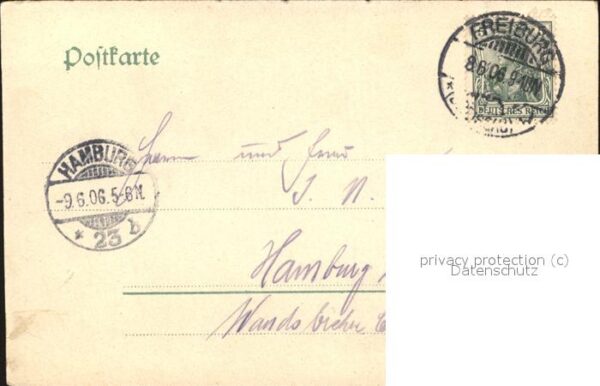 Postkarte
FREIBURG
8.6.06.9-10N.
DEUTSCHES REICH
HAMBURG
-9.6.06.5-6N.
* 23 b
Herrn und Frau
I. N.
Hamburg
Wandsbecker
privacy protection (c)
Datenschutz